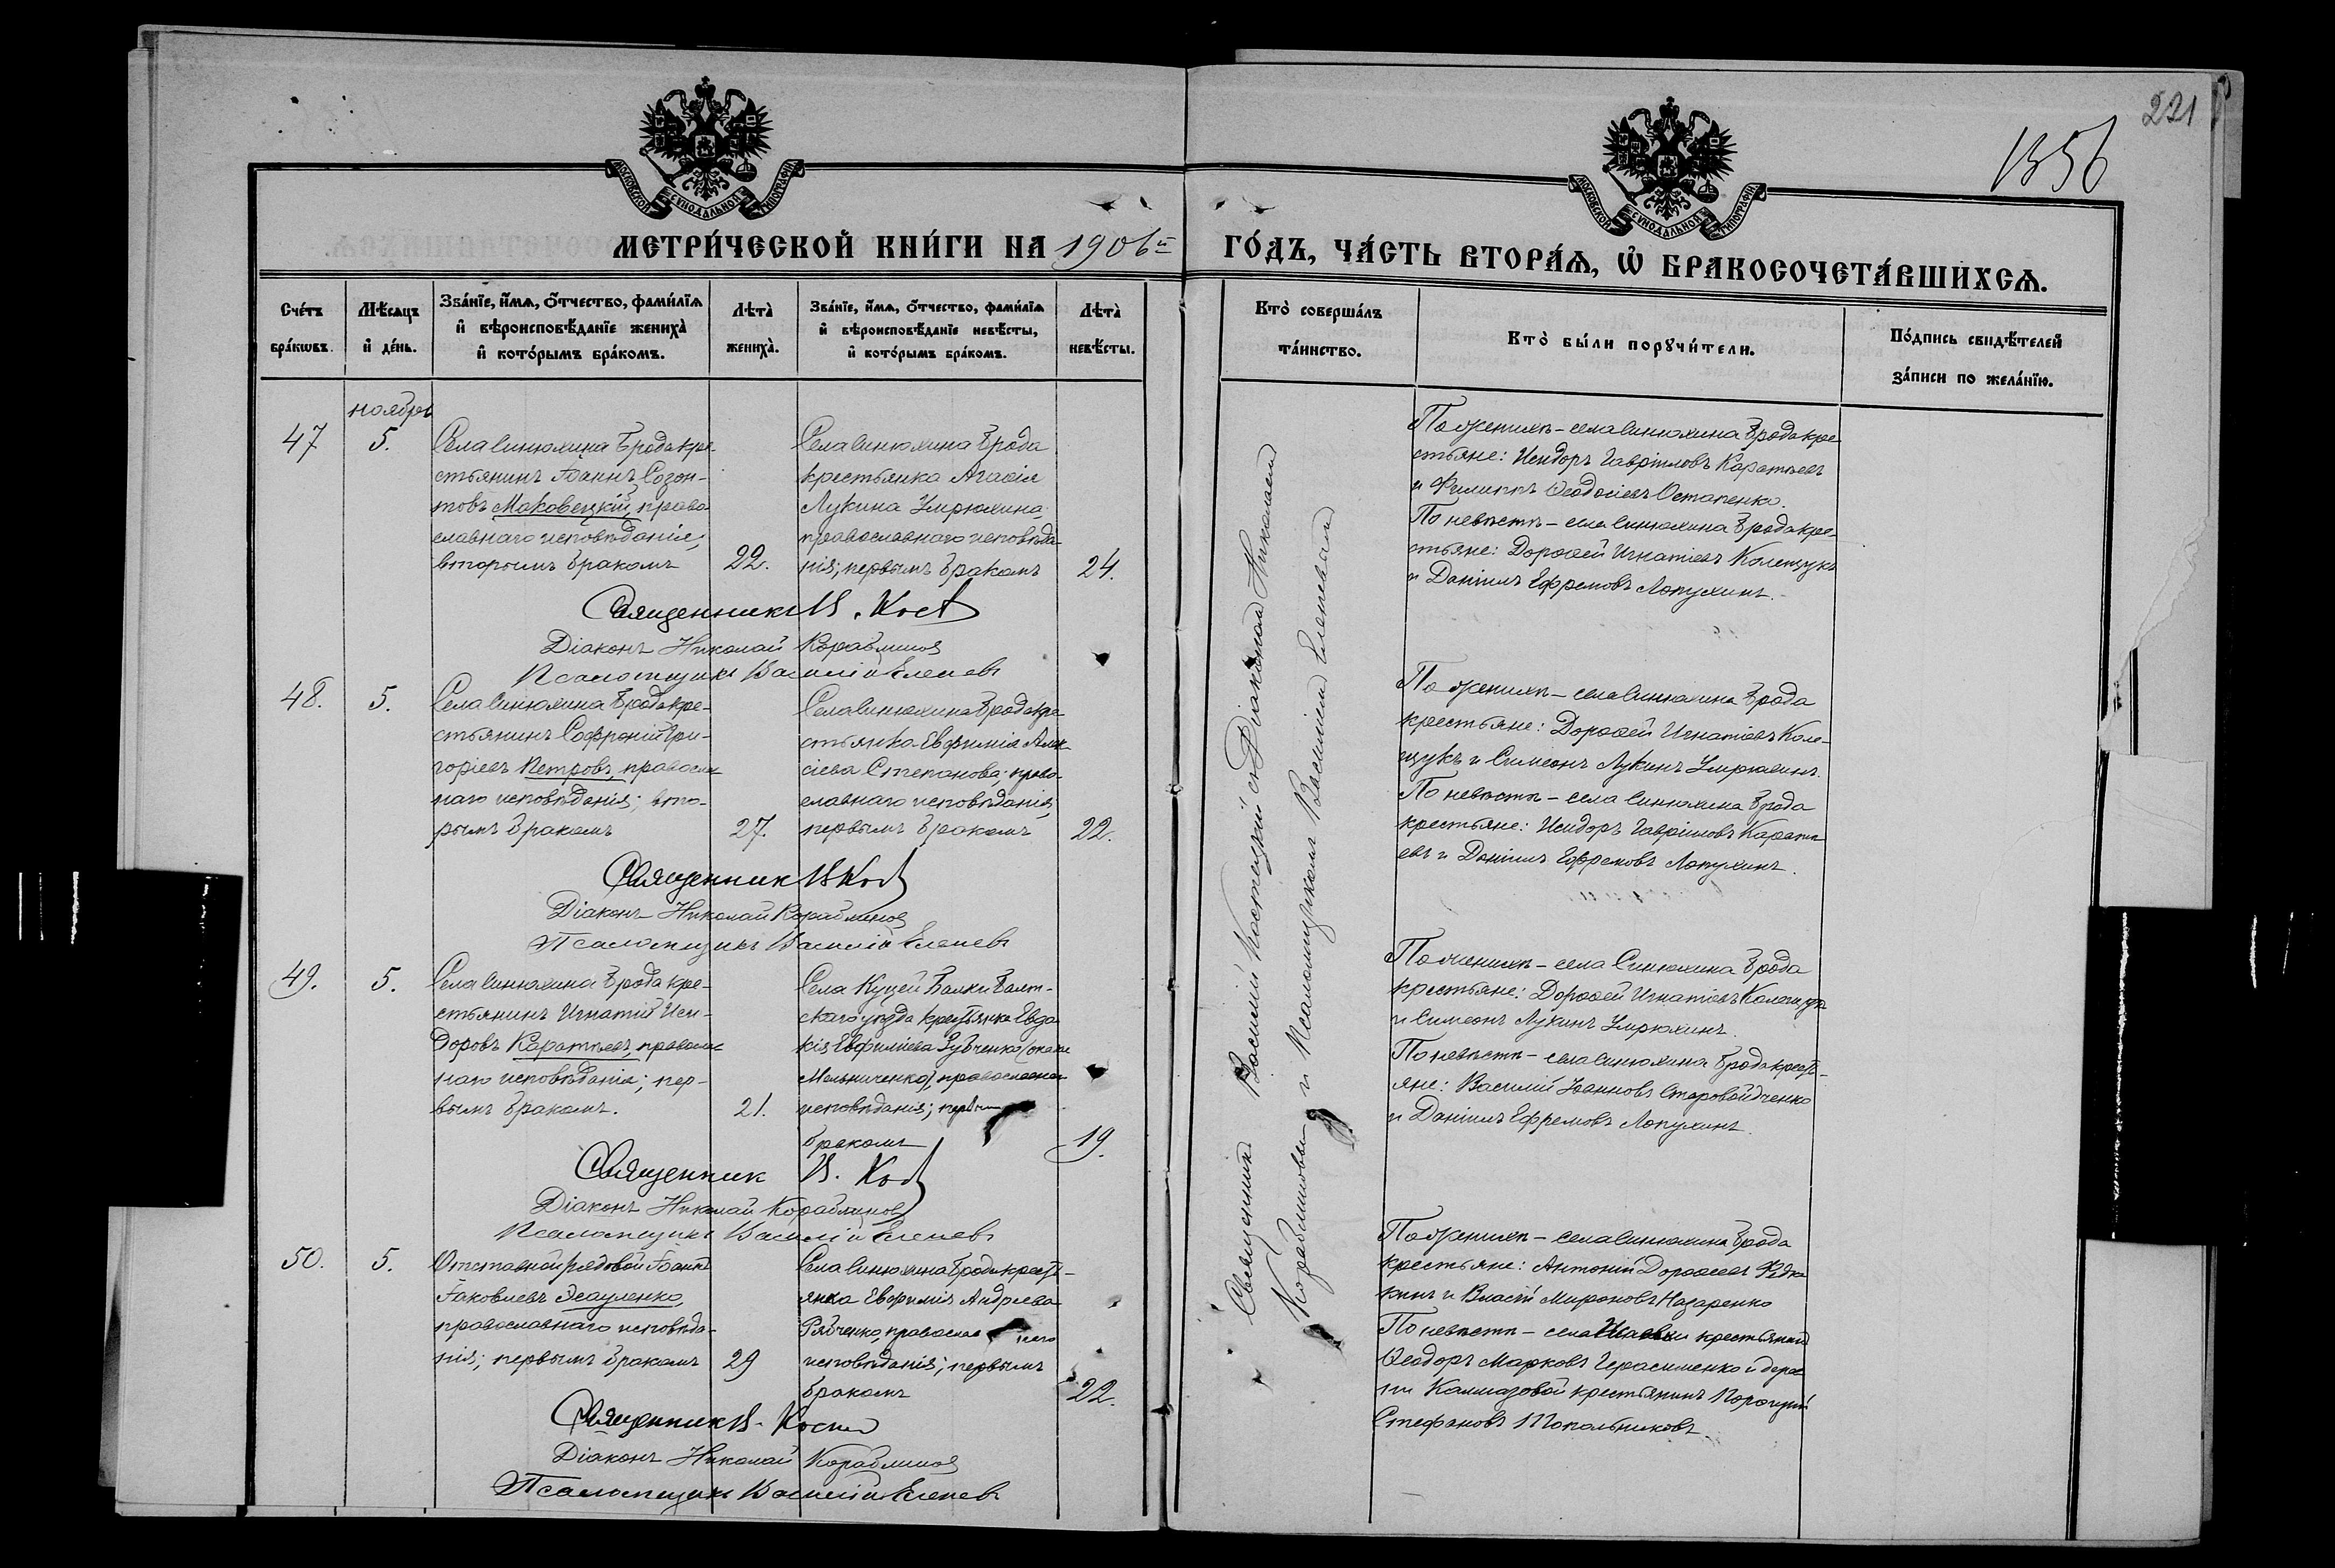 221
1356
МОСКОВСКОЙ СѴНОДАЛЬНОЙ ТИПОГРАФІИ
МОСКОВСКОЙ СѴНОДАЛЬНОЙ ТИПОГРАФІИ
МЕТРИ́ЧЕСКОЙ КНИ́ГИ НА 1906й
ГО́ДЪ, ЧА́СТЬ ВТОРА́Ѧ, Ѽ БРАКОСОЧЕТА́ВШИХСѦ.
Сче́тъ бра́кѡвъ.
Мѣ́сяцъ и҆ де́нь.
Зва́нїе, и҆́мѧ, ѻ҆́тчество, фами́лїѧ
и҆ вѣроисповѣ́данїе жениха̀
и҆ кото́рымъ бра́комъ.
Лѣта̀ жениха̀.
Зва́нїе, и҆́мѧ, ѻ҆́тчество, фами́лїѧ
и҆ вѣроисповѣ́данїе невѣ́сты,
и҆ кото́рымъ бра́комъ.
Лѣта̀ невѣ́сты.
Кто̀ соверша́лъ та́инство.
Кто̀ бы́ли порꙋчи́тели.
По́дпись свидѣ́телей
за́писи по жела́нїю.
ноябрь
47
5.
Села Синюхина Брода кре-
стьянинъ Іоаннъ Созон-
товъ Маковецкій, право-
славнаго исповѣданія,
вторымъ бракомъ
22.
Села Синюхина Брода
крестьянка Агафія
Лукина Умрюхина,
православнаго исповѣда-
нія; первымъ бракомъ
24.
По женихѣ – села Синюхина Брода кре-
стьяне: Исидоръ Гавріиловъ Каратѣевъ
и Филиппъ Ѳеодосіевъ Остапенко.
По невѣстѣ – села Синюхина Брода кре-
стьяне: Дороѳей Игнатіевъ Колещукъ
и Даніилъ Ефремовъ Лопухинъ.
Священникъ В. Кост
Діаконъ Николай Кораблиновъ
Псаломщикъ Василій Еленевъ
48.
5.
Села Синюхина Брода кре-
стьянинъ Софроній Гри-
горіевъ Петровъ, православ-
наго исповѣданія; вто-
рымъ бракомъ
27.
Села Синюхина Брода кре-
стьянка Евфимія Алек-
сіева Степанова, право-
славнаго исповѣданія,
первымъ бракомъ
22.
По женихѣ – села Синюхина Брода
крестьяне: Дороѳей Игнатіевъ Коле-
щукъ и Симеонъ Лукинъ Умрюхинъ.
По невѣстѣ – села Синюхина Брода
крестьяне: Исидоръ Гавріиловъ Каратѣ-
евъ и Даніилъ Ефремовъ Лопухинъ.
Священник В Кост
Діаконъ Николай Кораблиновъ
Псаломщикъ Василій Еленевъ
49.
5.
Села Синюхина Брода кре-
стьянинъ Игнатій Иси-
доровъ Каратѣевъ, православ-
наго исповѣданія; пер-
вымъ бракомъ.
21.
Села Куцей Балки Балт-
скаго уѣзда крестьянка Евдо-
кія Евфиміева Зубченко (она же
Мельниченко), православнаго
исповѣданія; первымъ
бракомъ
19.
По женихѣ – села Синюхина Брода
крестьяне: Дороѳей Игнатіевъ Колещукъ
и Симеонъ Лукинъ Умрюхинъ.
По невѣстѣ – села Синюхина Брода кресть-
яне: Василій Іоанновъ Старовойдченко
и Даніилъ Ефремовъ Лопухинъ.
Священник В. Кост
Діаконъ Николай Кораблиновъ
Псаломщикъ Василій Еленевъ
50.
5.
Отставной рядовой Іоаннъ
Іаковлевъ Эсауленко,
православнаго исповѣда-
нія; первымъ бракомъ
29
Села Синюхина Брода кресть-
янка Евфимія Андреева
Рябченко, православнаго
исповѣданія; первымъ
бракомъ
22.
По женихѣ – села Синюхина Брода
крестьяне: Антоній Дороѳеевъ
и Власій Мироновъ Назаренко
По невѣстѣ – села крестьянинъ
Ѳеодоръ Марковъ Герасименко и дерев-
ни Калмазовой крестьянинъ
Стефановъ Топольниковъ.
Священникъ В. Кост
Діаконъ Николай Кораблиновъ
Псаломщикъ Василій Еленевъ
Священникъ Василій Костецкій съ Діакономъ Николаемъ
Кораблиновымъ и Псаломщикомъ Василіемъ Еленевымъ